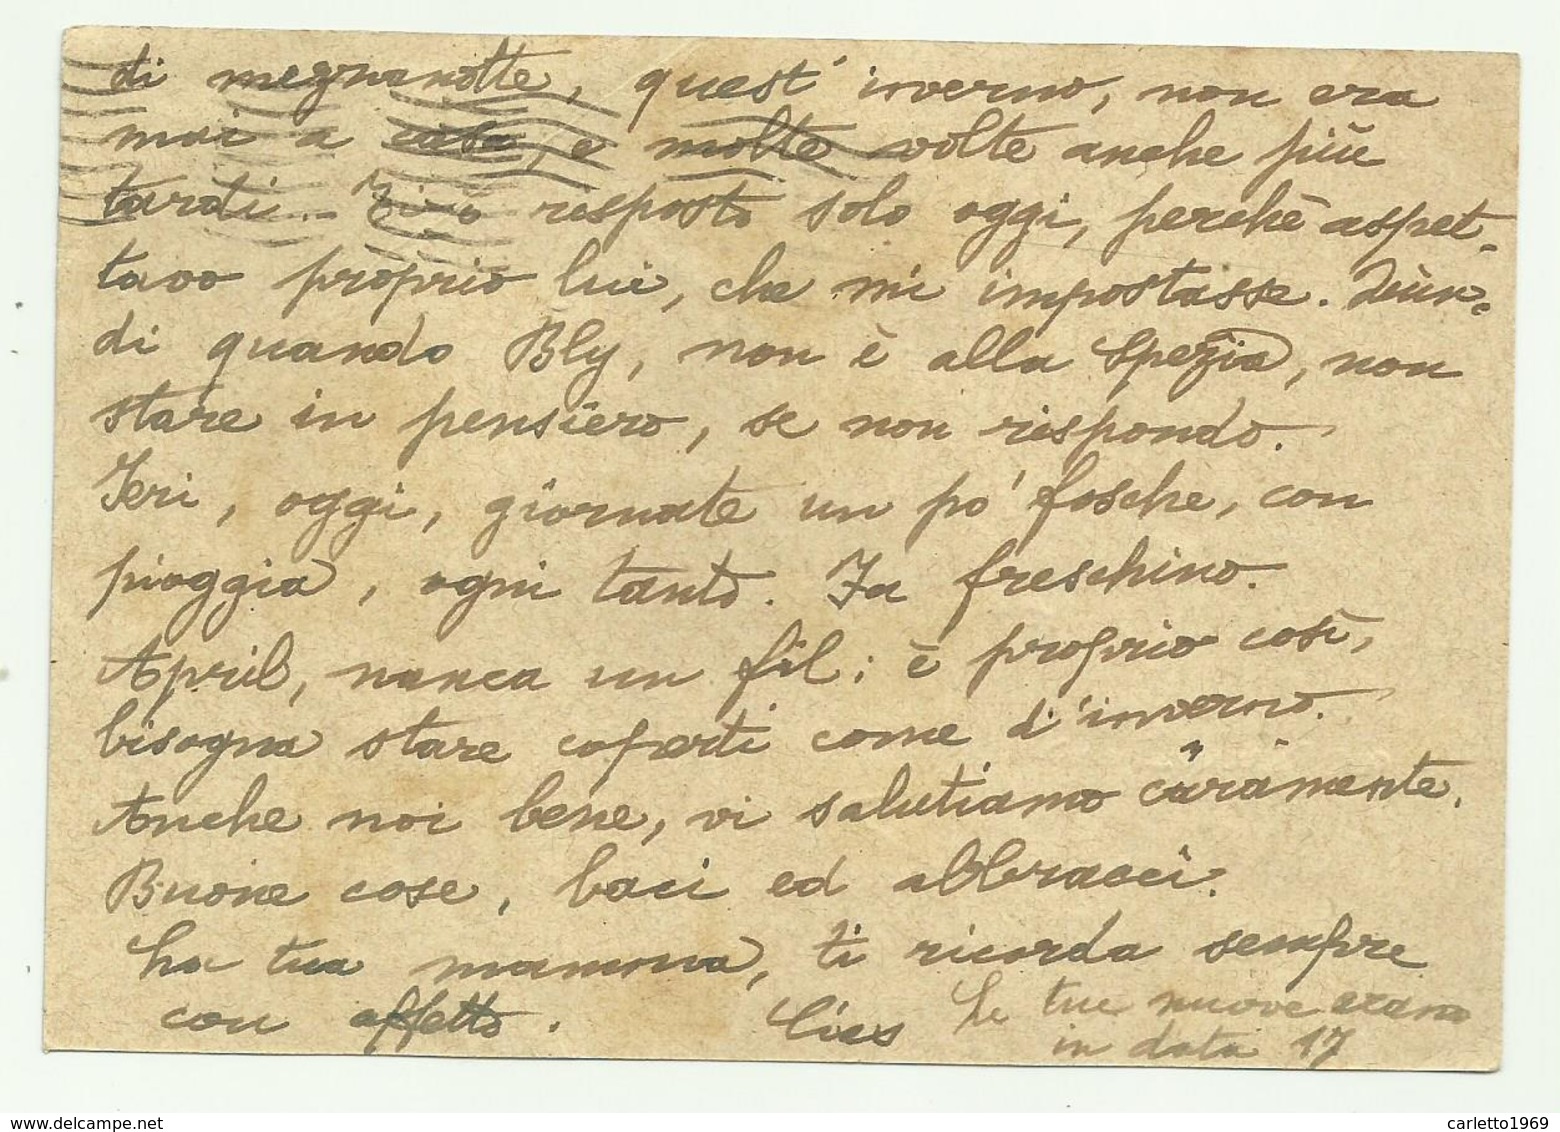 di megnanotte, quest' inverno, non era
mai a casa, e molte volte anche più
tardi. - risposto solo oggi, perchè aspet-
tavo proprio lui, che mi impostasse. Quin-
di quando Bly, non è alla Spezia, non
stare in pensiero, se non rispondo.
Ieri, oggi, giornate un pò fosche, con
pioggia, ogni tanto. Fa freschino.
April, nanca un fil; è proprio così,
bisogna stare coperti come d'inverno.
Anche noi bene, vi salutiamo caramente.
Buone cose, baci ed abbracci.
La tua mamma, ti ricorda sempre
con affetto.
Le tue nuove erano
in data 17
carletto1969